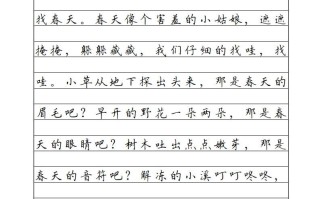 找春天。春天像个害羞的小姑娘，遮遮
掩掩，躲躲藏藏，我们仔细的找哇，找
哇。小草从地下探出头来，那是春天的
眉毛吧？早开的野花一朵两朵，那是春
天的眼睛吧？树木吐出点点嫩芽，那是
春天的音符吧？解冻的小溪叮叮咚咚，